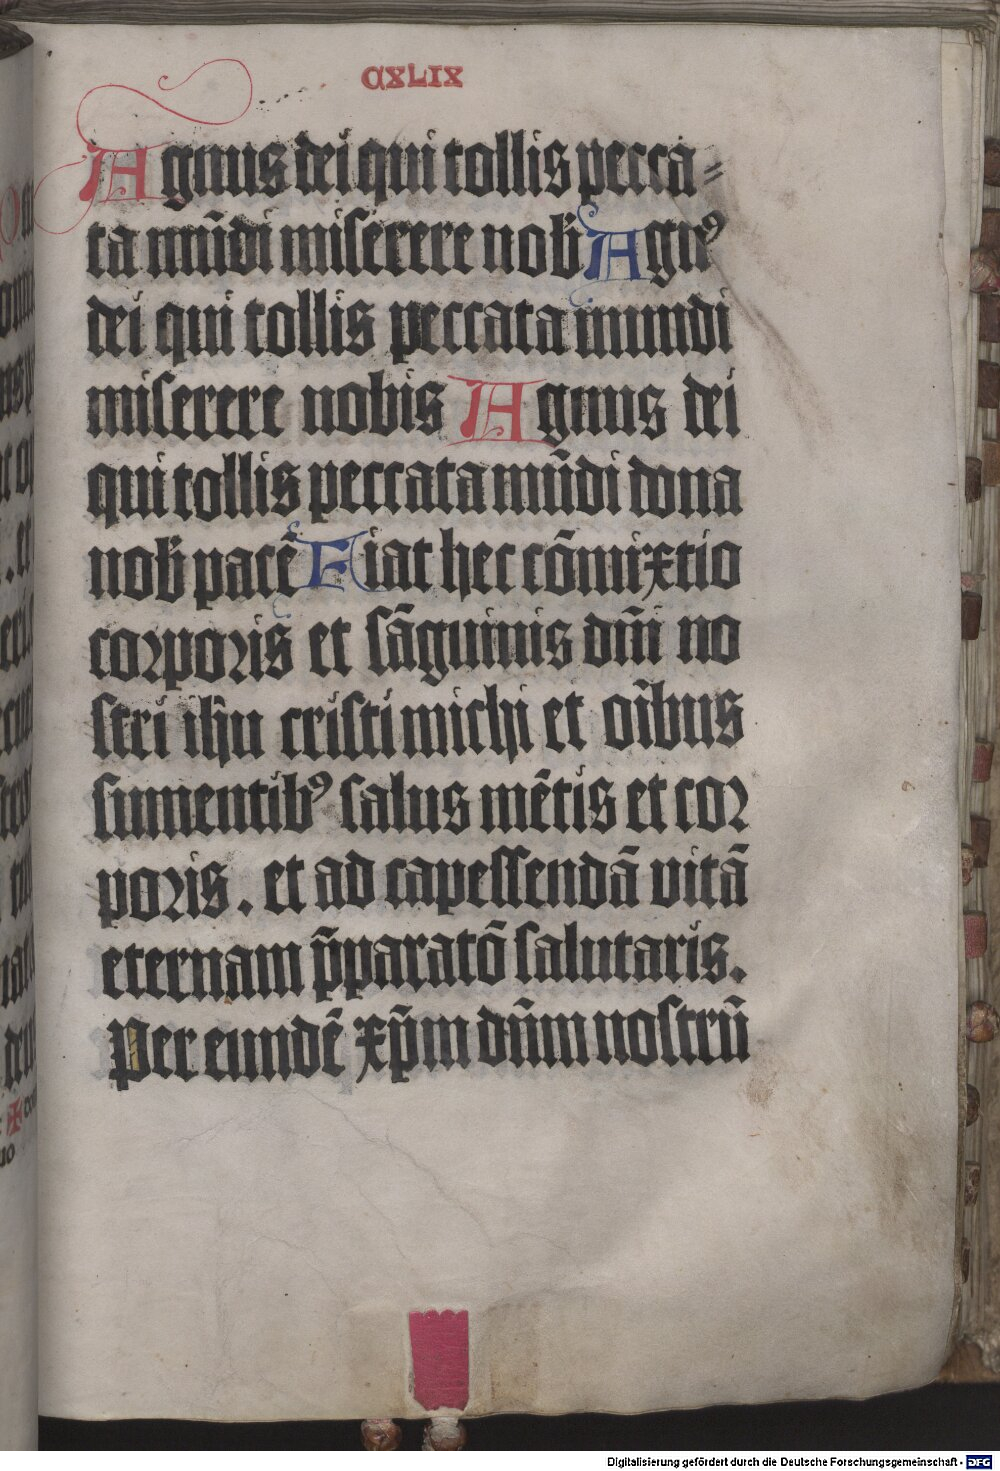 CXLIX
Agnus dei qui tollis pecca⸗
ta mūdi miserere nob̄ Agnꝰ
dei qui tollis peccata mundi
miserere nobis Agnus dei
qui tollis peccata mūdi dona
nob̄ pacē Fiat hec cōmixtio
corporis et sāguinis dn̄i no
stri ih̄u cristi michi et oībus
sumentibꝰ salus mētis et cor
poris. et ad capessendā vitā
eternam p̄paratō salutaris.
Per eundē xp̄m dn̄m nostrū
Digitalisierung gefördert durch die Deutsche Forschungsgemeinschaft - DFG